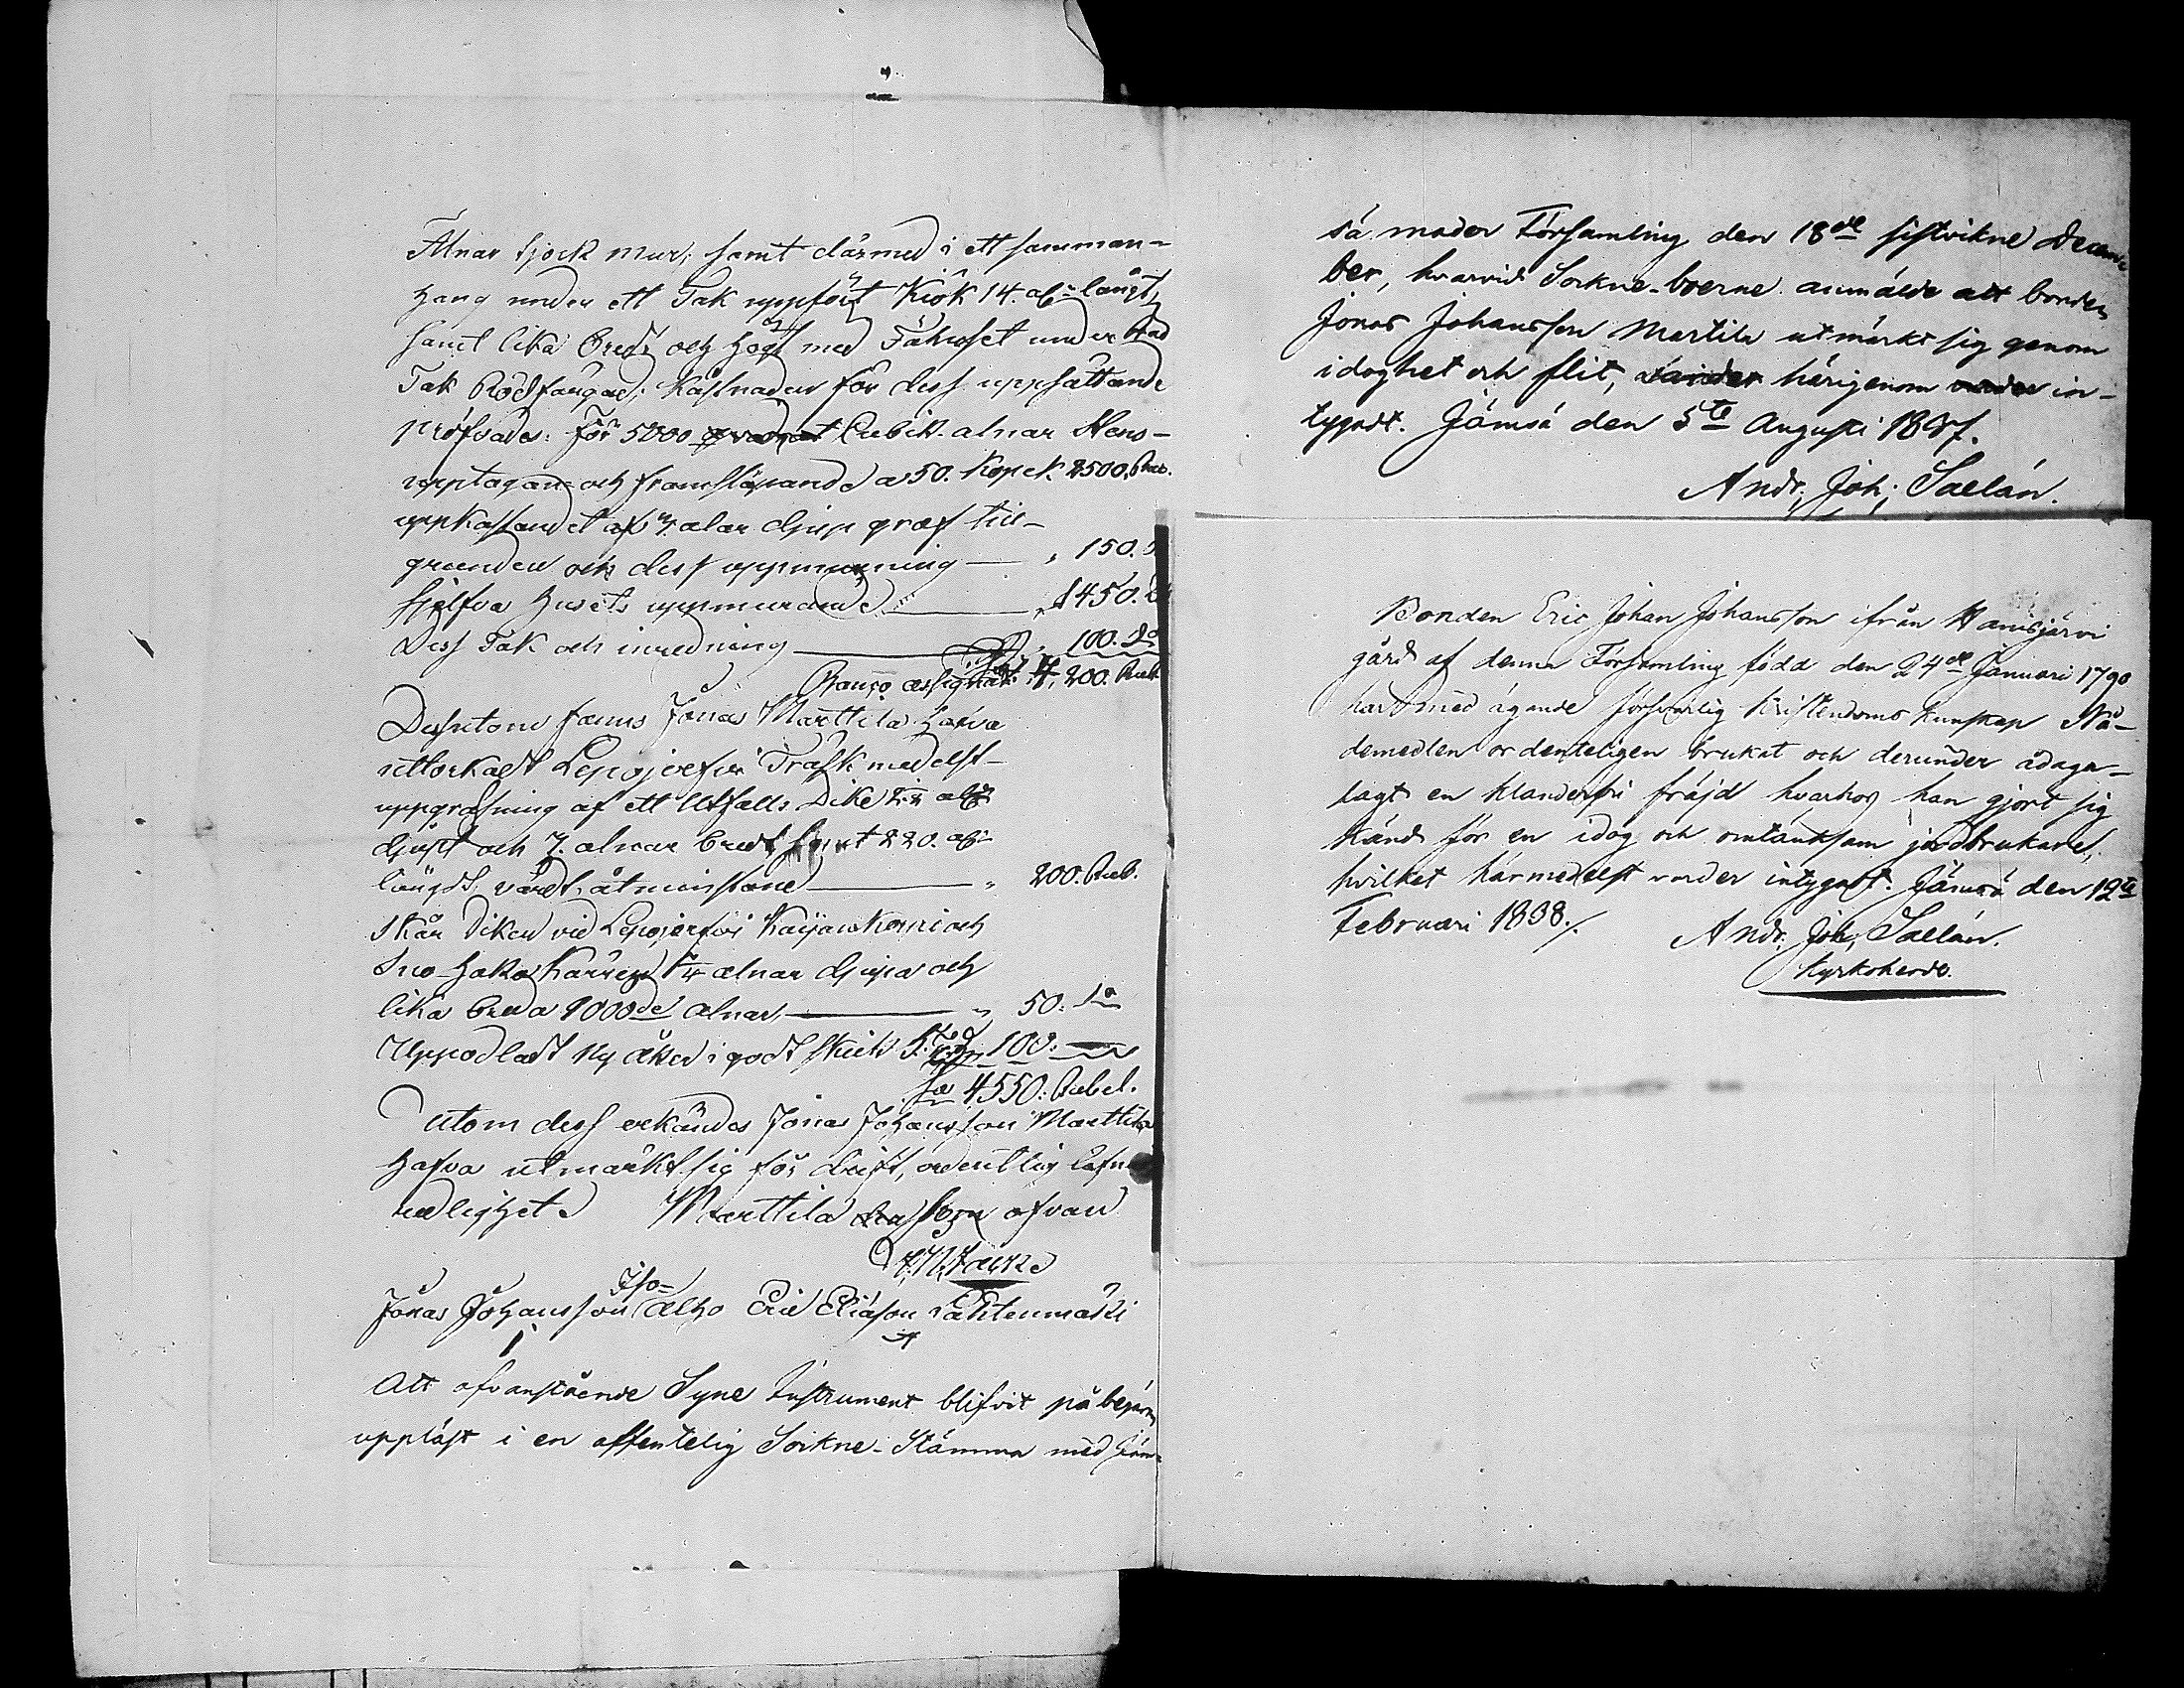 Alnar tjock mur, samt därmed i ett samman-
hang under ett Tak uppfört Kiök 14. al:r långt,
samt lika bredt och högt med Fähuset under
Tak Rödfärgad; kåstnaden för dess uppsättande
pröfvades: för 5000 Cubik alnar Stens-
upptagan- och framsläpande a 50. Kopek. 2500. Rub.
uppkastandet af 7. alnar djup graf till-
grunden och dess uppmurning — " 150.
Sjelfva husets uppmurande — " 1450.
Dess Tak och inredning — " 100. do
Banco assignat: 4,200. Rub.
Dessutom fanns Jonas Marttila hafva
uttorkadt Lepojerfvi Träsk medelst-
uppgrafning af ett Utfalls Dike
djupt och 7. alnar bredt samt 220. al:r
längdt, värdt, åtminstone — " 200. Rub.
Skär Diken vid Lepojerfvi och
Suo-haka alnar djupa och
lika breda 1000de alnar, — " 50. do
Uppodladt ny åker i godt skick 100:
Sa 4550: Rubel.
Utom dess erkändes Jonas Johansson Marttila
hafva utmärkt sig för drift, ordentlig
redlighet. Marttila ofvan

Jonas Johansson Iso-Alho Eric Eliason Lahtenmäki
Att ofvanstående Syne Instrument blifvit på begäran
uppläst i en offentelig Sockne-Stämma med Jäm-
sä moder Församling den 18de sistvikne Decem-
ber, hvarvid Sockne-boerne anmälde att bonden
Jonas Johansson Martila utmärkt sig genom
idoghet och flit, härigenom in-
tygadt. Jämsä den 5te Augusti 1837.
Andr. Joh; Saelan.
Bonden Eric Johan Johansson ifrån
gård af denna Församling född den 24de Januari 1790
har med ägande försvarlig Kristendoms kunskap Nå-
demedlen ordenteligen brukat och derunder ådaga-
lagt en klanderfri fräjd hvarhos han gjort sig
känd för en idog och omtänksam jordbrukare;
hvilket härmedelst varder intygadt. Jämsä den 12te
Februari 1838./.
Andr. Joh; Saelan.
Kyrkoherde.